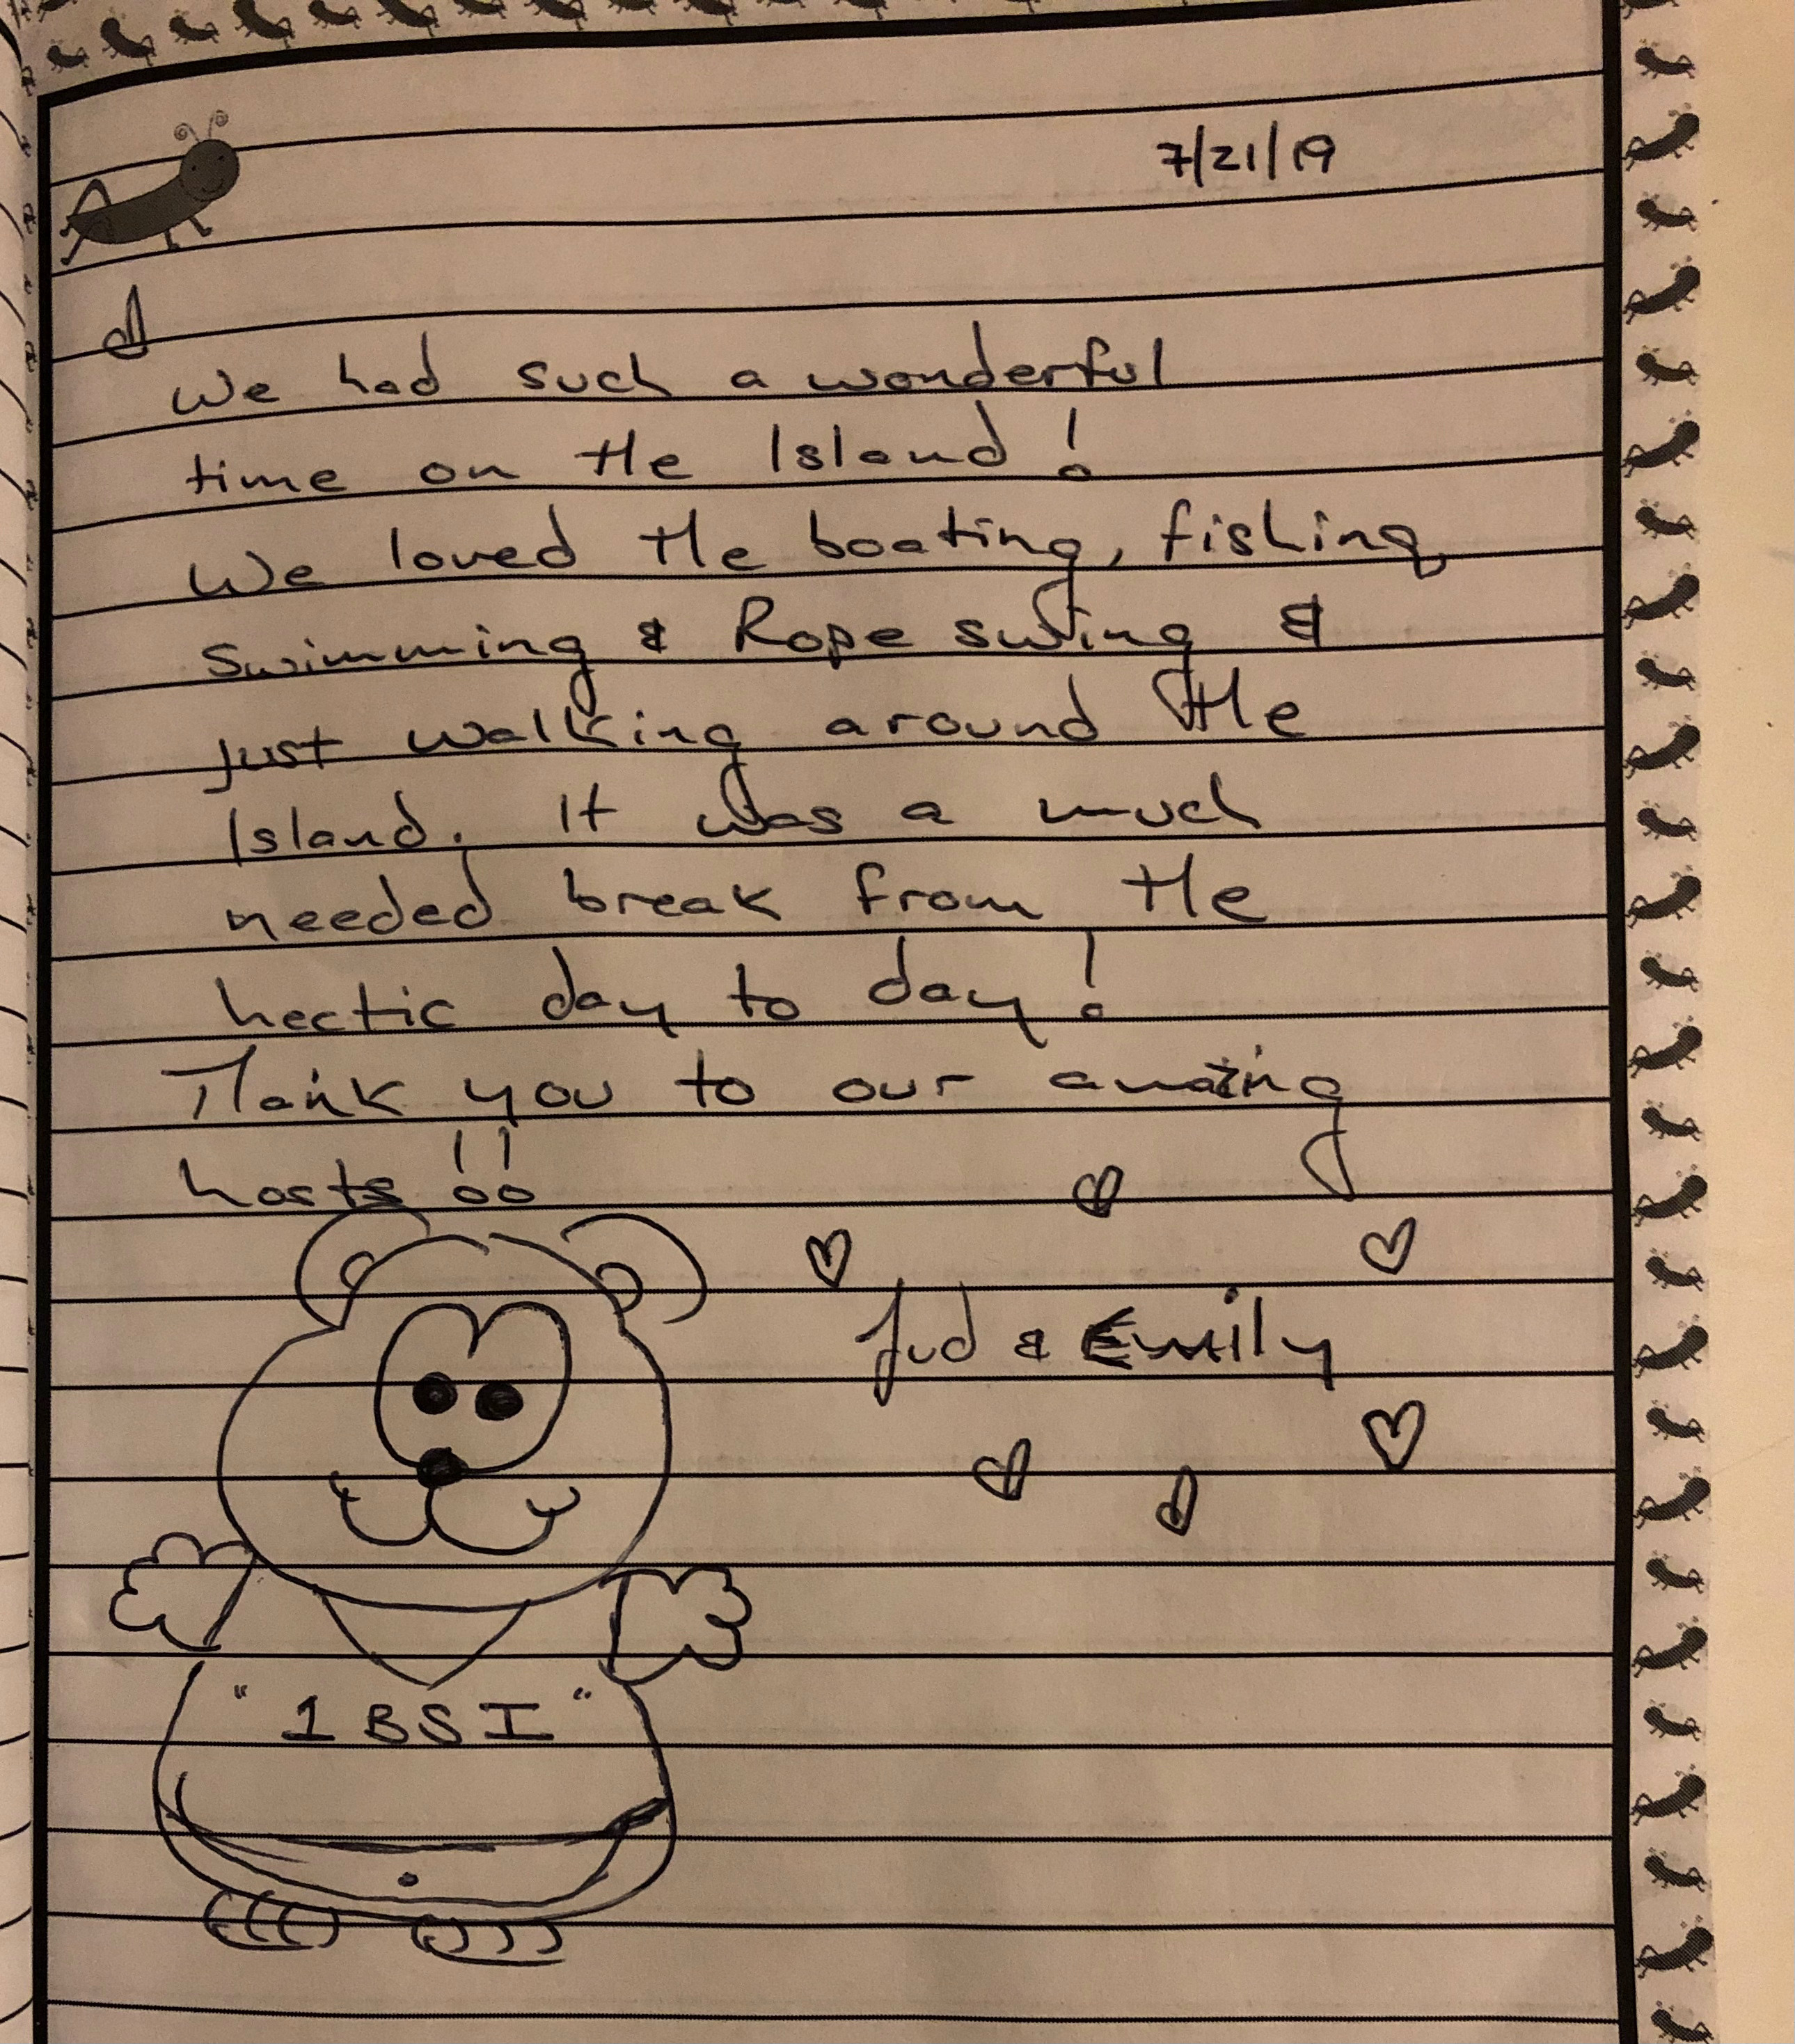 7/21/19
We had such a wonderful
time on the Island!
We loved the boating, fishing,
Swimming & Rope swing &
just walking around the
Island. It was a much
needed break from the
hectic day to day!
Thank you to our amazing
hosts!!
Jud & Emily
"1BSI"